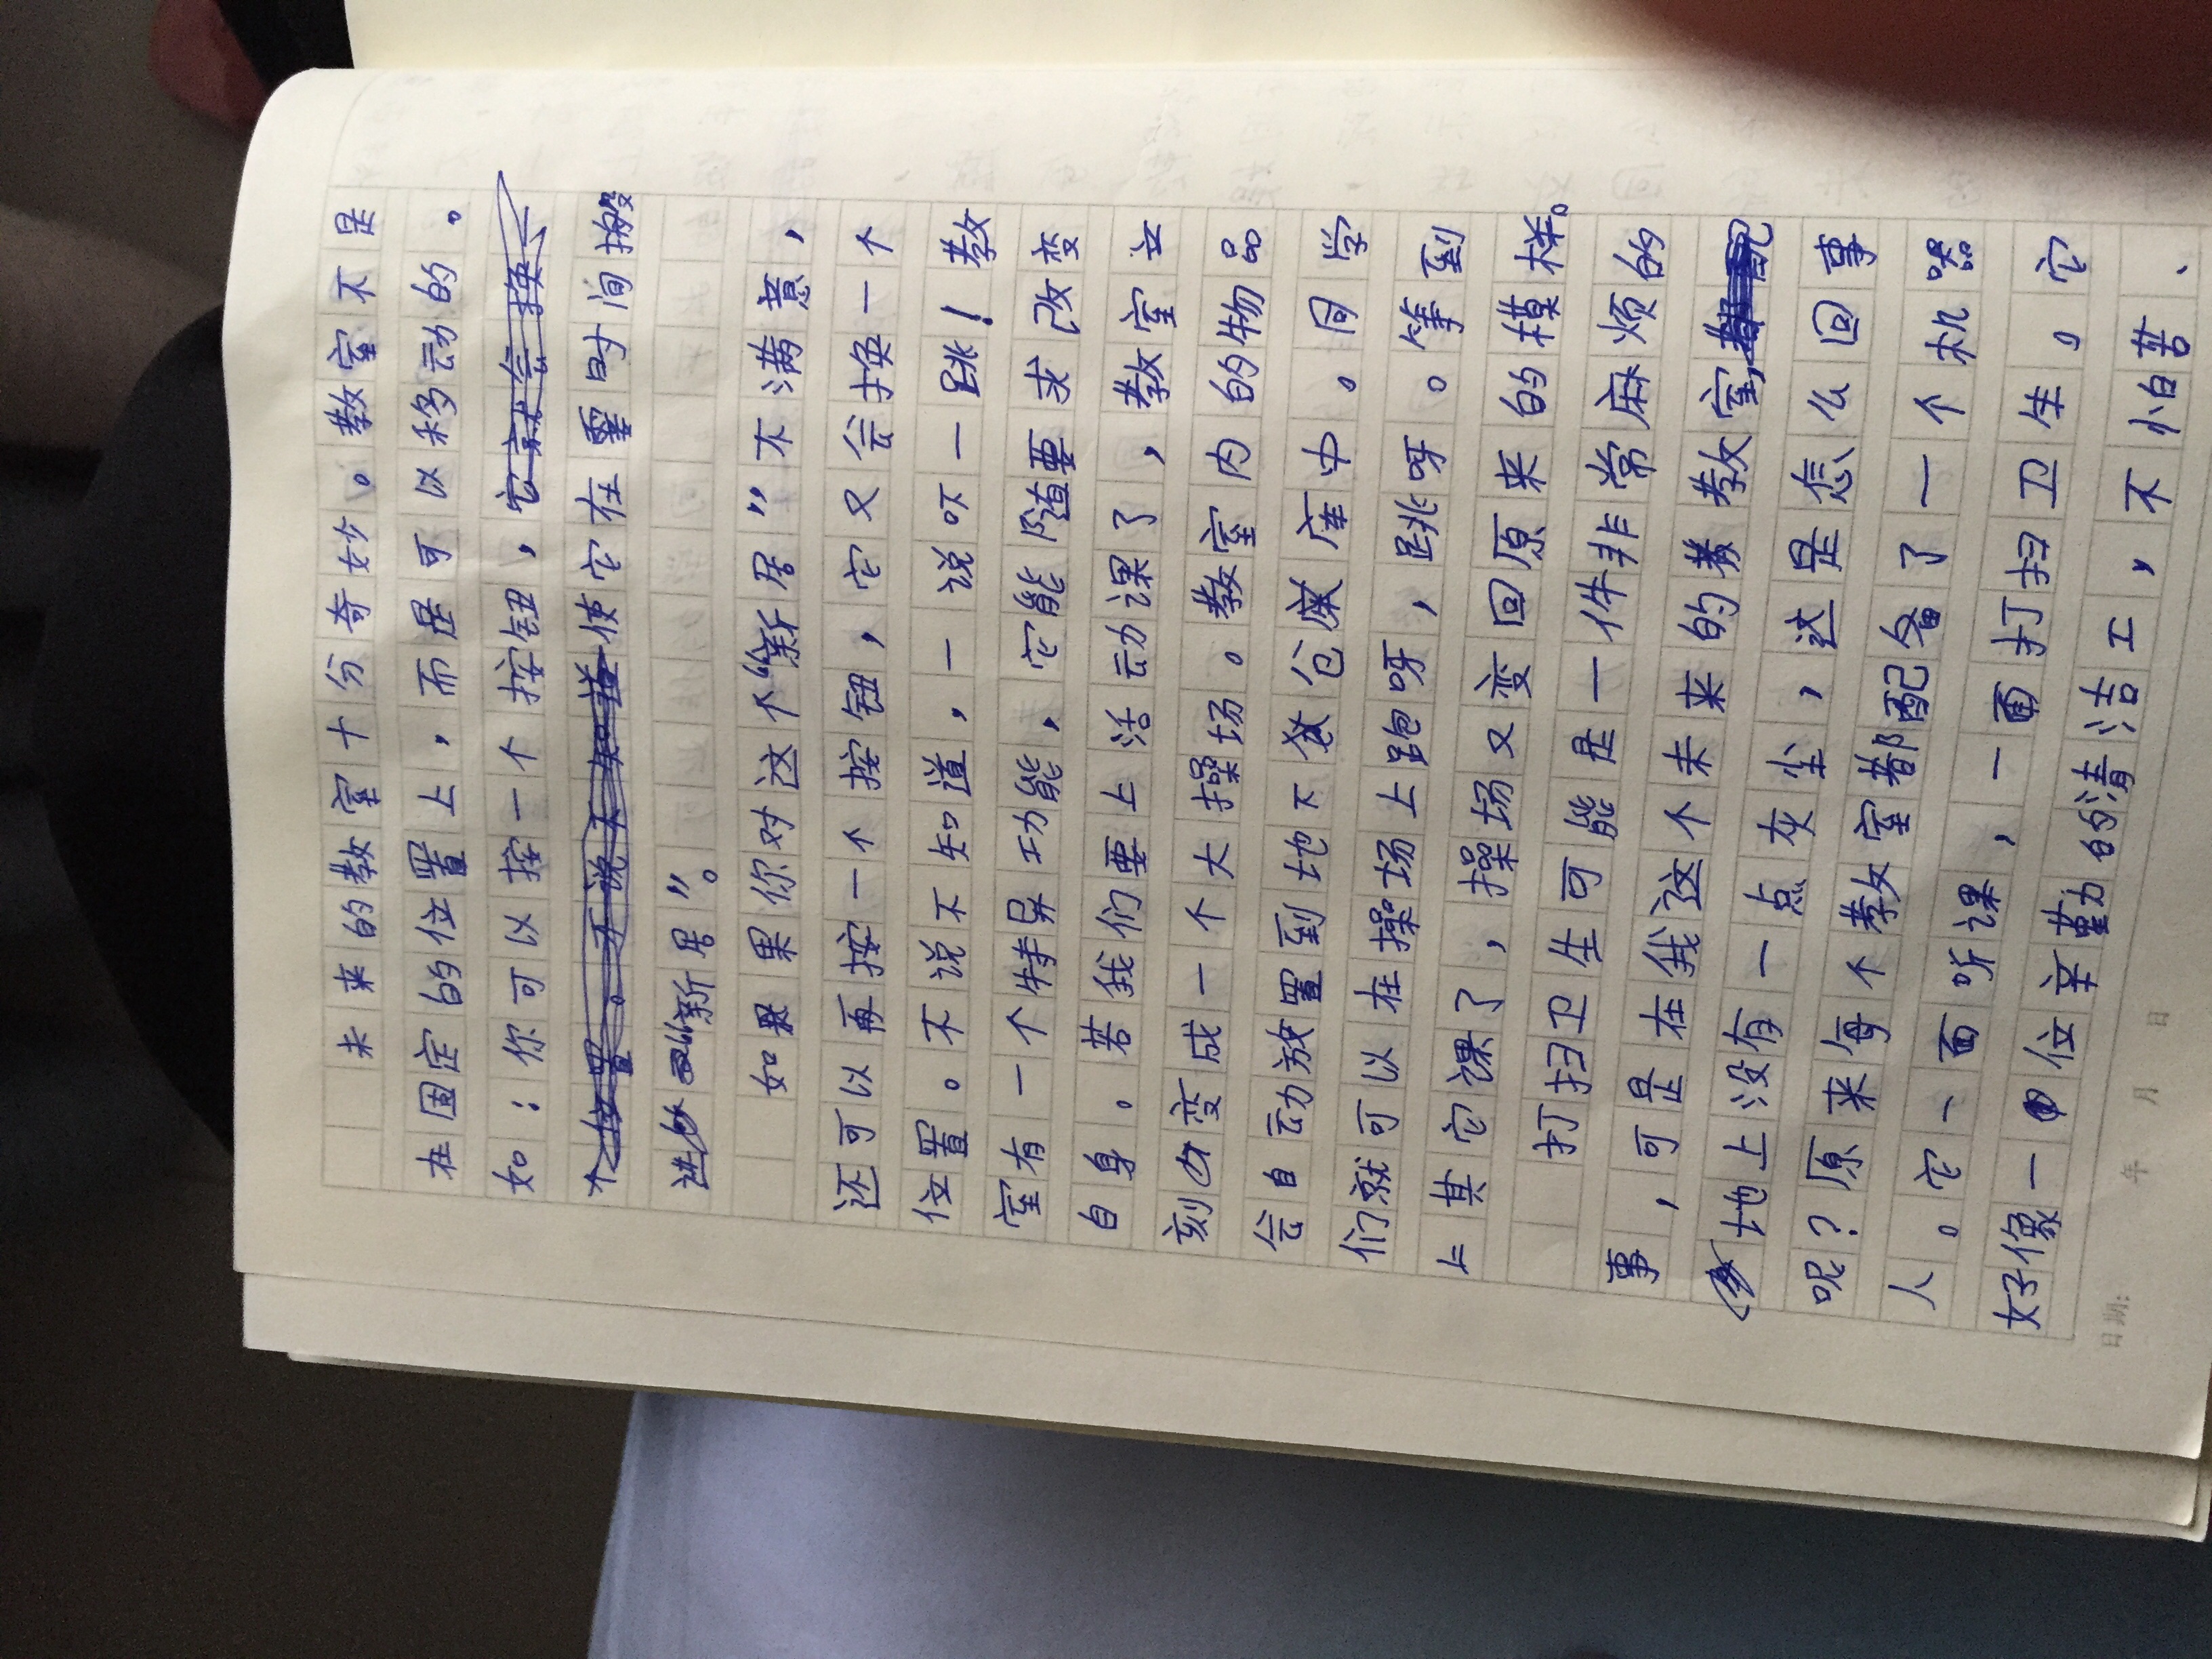 未来的教室十分奇妙。教室不是
在固定的位置上，而是可以移动的。
如：你可以按一个按钮，它就会换
个位置。使它在霎时间搬
进“新居”。
如果你对这个“新居”不满意，
还可以再按一个按钮，它又会换一个
位置。不说不知道，一说吓一跳！教
室有一个特异功能，它能随要求改变
自身。若我们要上活动课了，教室立
刻变成一个大操场。教室内的物品
会自动放置到地下仓库中。同学
们就可以在操场上跑呀，跳呀。等到
上其它课了，操场又变回原来的模样。
打扫卫生可能是一件非常麻烦的
事，可是在我这个未来的教室，
地上没有一点灰尘，这是怎么回事
呢？原来每个教室都配备了一个机器
人。它一面听课，一面打扫卫生。它
好像一位辛勤的清洁工，不怕苦、
日期： 年 月 日